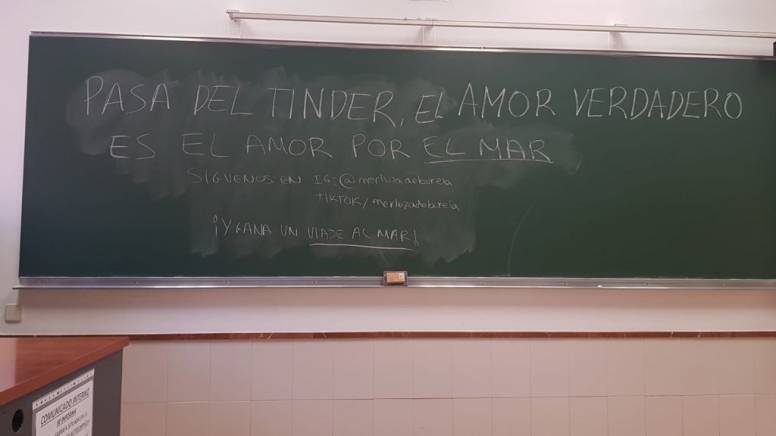 PASA DEL TINDER, EL AMOR VERDADERO
ES EL AMOR POR EL MAR
SÍGUENOS EN IG: @merluzadeburela
TIKTOK/ merluzadeburela
¡Y GANA UN VIAJE AL MAR!
COMUNICADO INTERNO
SE INFORMA